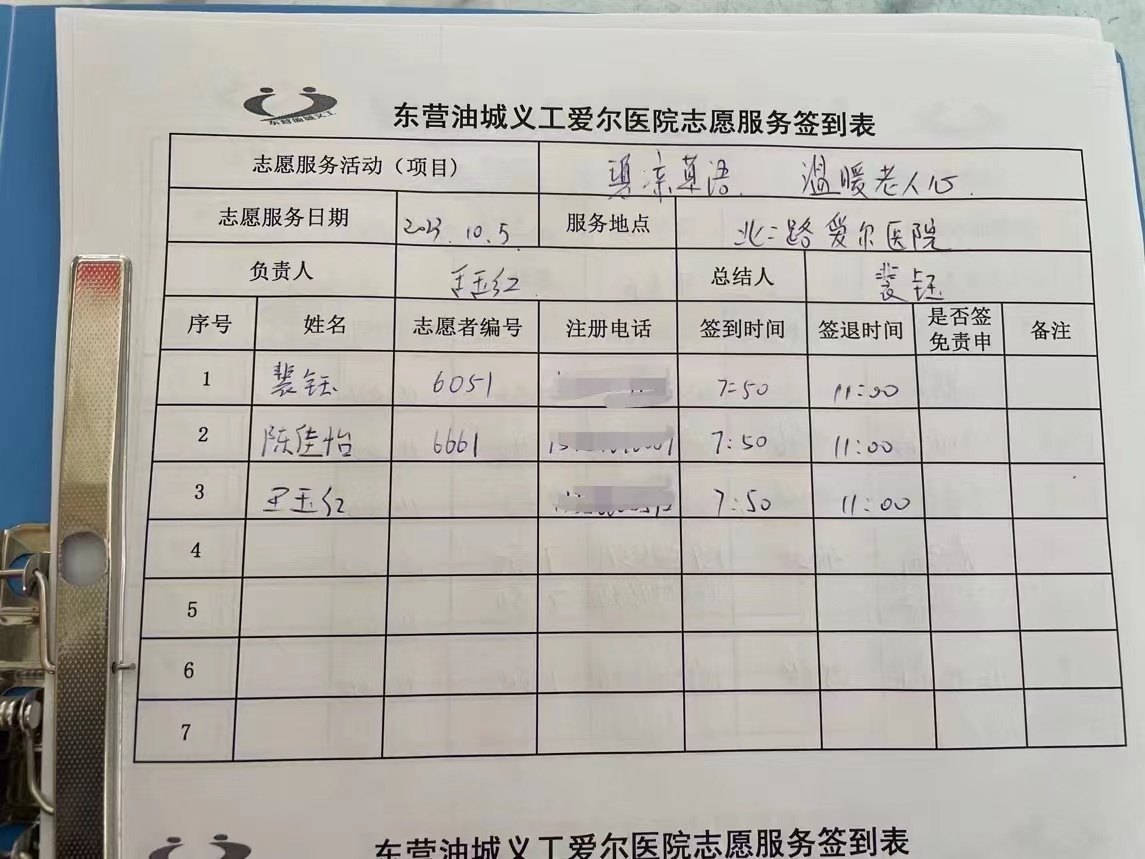 东营油城义工
东营油城义工爱尔医院志愿服务签到表
志愿服务活动（项目） 真凉草语 温暖老人心.
志愿服务日期 2023.10.5 服务地点 北二路爱尔医院
负责人 王玉红 总结人 裴钰
序号 姓名 志愿者编号 注册电话 签到时间 签退时间 是否签免责申 备注
1 裴钰 6051 7:50 11:00
2 陈佳怡 6661 7:50 11:00
3 王玉红 7:50 11:00
4
5
6
7
东营油城义工爱尔医院志愿服务签到表